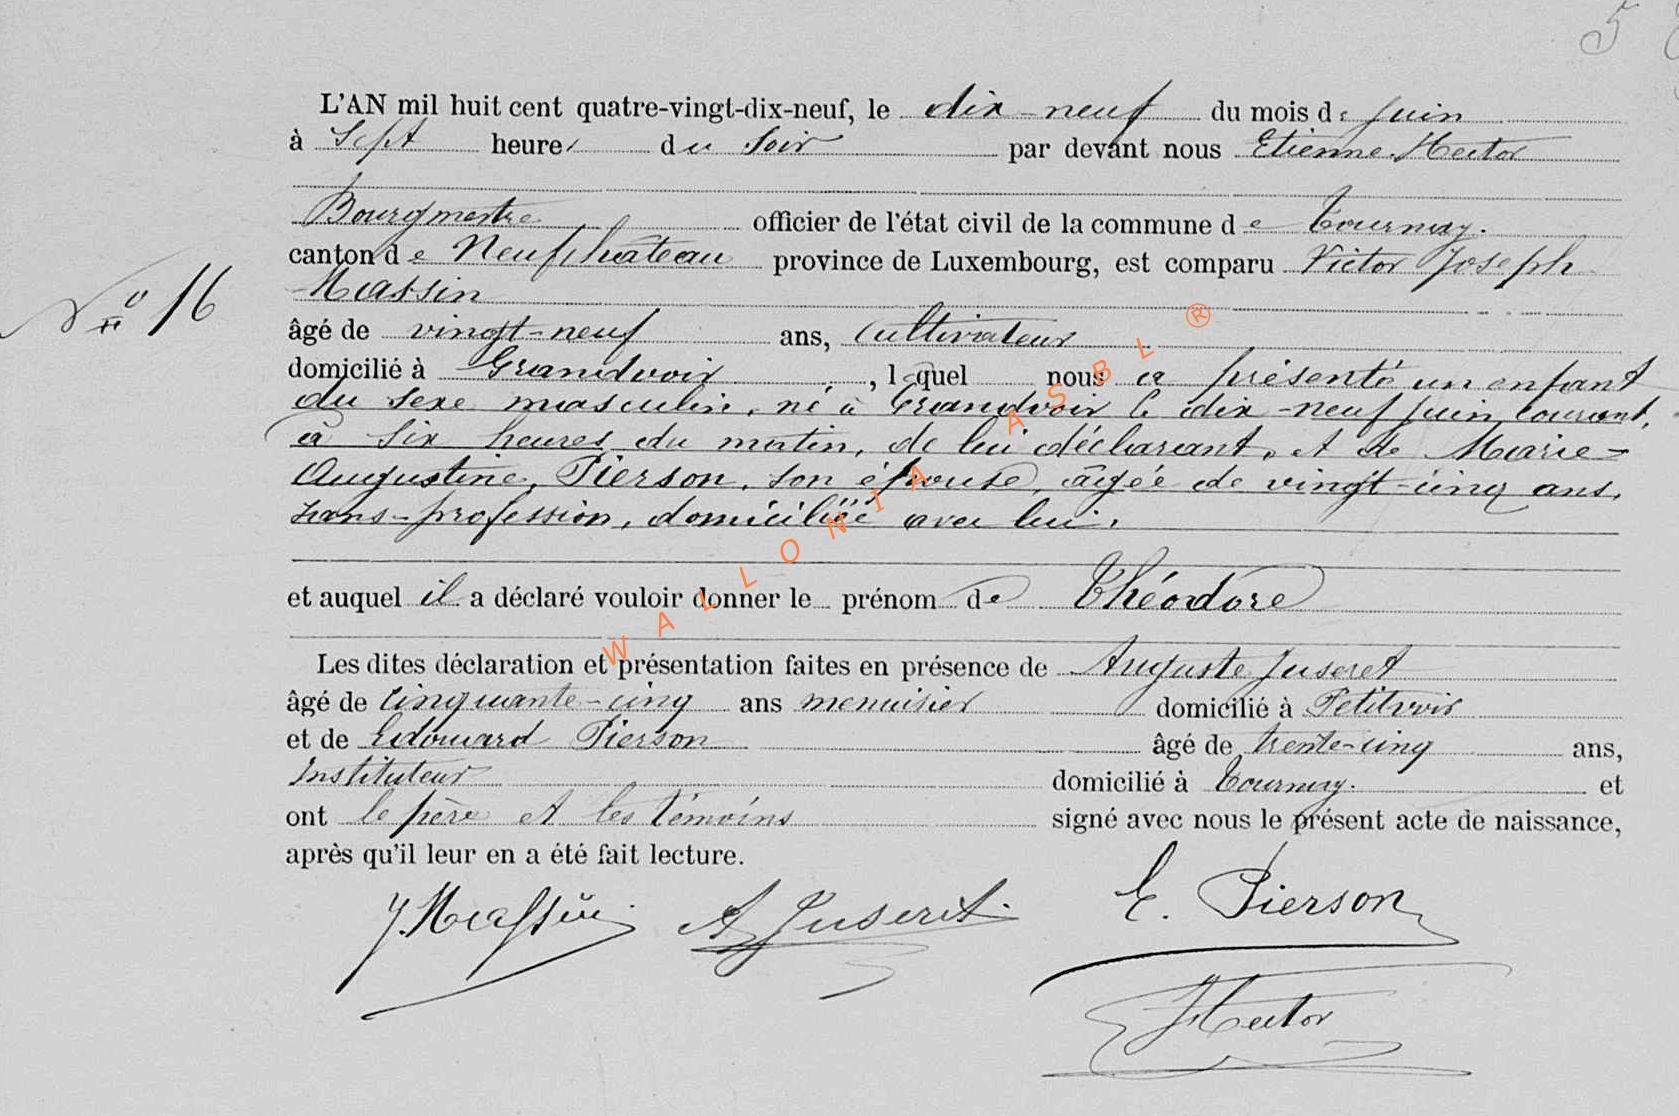 5
L'AN mil huit cent quatre-vingt-dix-neuf, le dix-neuf du mois de Juin
à Sept heures du Soir par devant nous Etienne Hector
Bourgmestre officier de l'état civil de la commune de Tournay.
canton de Neufchâteau province de Luxembourg, est comparu Victor Joseph
N° 16
Massin
âgé de vingt-neuf ans, Cultivateur
domicilié à Grandvoir, lequel nous a présenté un enfant
du sexe masculin, né à Grandvoir le dix-neuf juin courant,
à six heures du matin, de lui déclarant, et de Marie-
Augustine, Pierson, son épouse, âgée de vingt-cinq ans,
sans-profession, domiciliée avec lui.
et auquel il a déclaré vouloir donner le prénom de Théodore
Les dites déclaration et présentation faites en présence de Auguste Juseret
âgé de Cinquante-cinq ans menuisier domicilié à Petitvoir
et de Edouard Pierson âgé de trente-cinq ans,
Instituteur domicilié à Tournay. et
ont le père et les témoins signé avec nous le présent acte de naissance,
après qu'il leur en a été fait lecture.
J. Massin A Juseret E. Pierson
Hector
WALLONIA ASBL ®